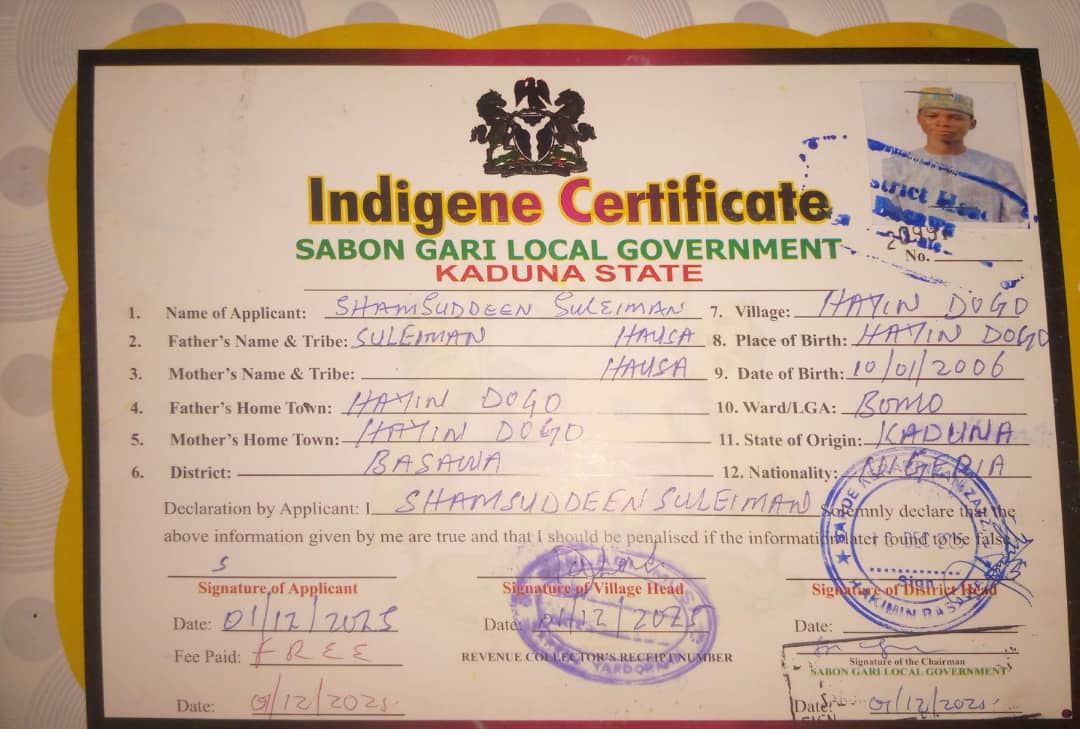 Indigene Certificate
SABON GARI LOCAL GOVERNMENT
KADUNA STATE
strict
No.
1. Name of Applicant: SHAMSUDDEEN SULEIMAN
2. Father's Name & Tribe: SULEIMAN HAUSA
3. Mother's Name & Tribe: HAUSA
4. Father's Home Town: HAYIN DOGO
5. Mother's Home Town: HAYIN DOGO
6. District: BASAWA
7. Village: HAYIN DOGO
8. Place of Birth: HAYIN DOGO
9. Date of Birth: 10/01/2006
10. Ward/LGA: BOMO
11. State of Origin: KADUNA
12. Nationality: NIGERIA
Declaration by Applicant: I SHAMSUDDEEN SULEIMAN Solemnly declare that the
above information given by me are true and that I should be penalised if the information later found to be false
S
Signature of Applicant
Date: 01/12/2025
Fee Paid: FREE
Date: 01/12/2025
Signature of Village Head
Date: 01/12/2025
REVENUE COLLECTOR'S RECEIPT NUMBER
YARDORA
DEC 2025
Sign
HAKIMIN BASAWA
Signature of District Head
Date:
Signature of the Chairman
SABON GARI LOCAL GOVERNMENT
Date: 01/12/2025